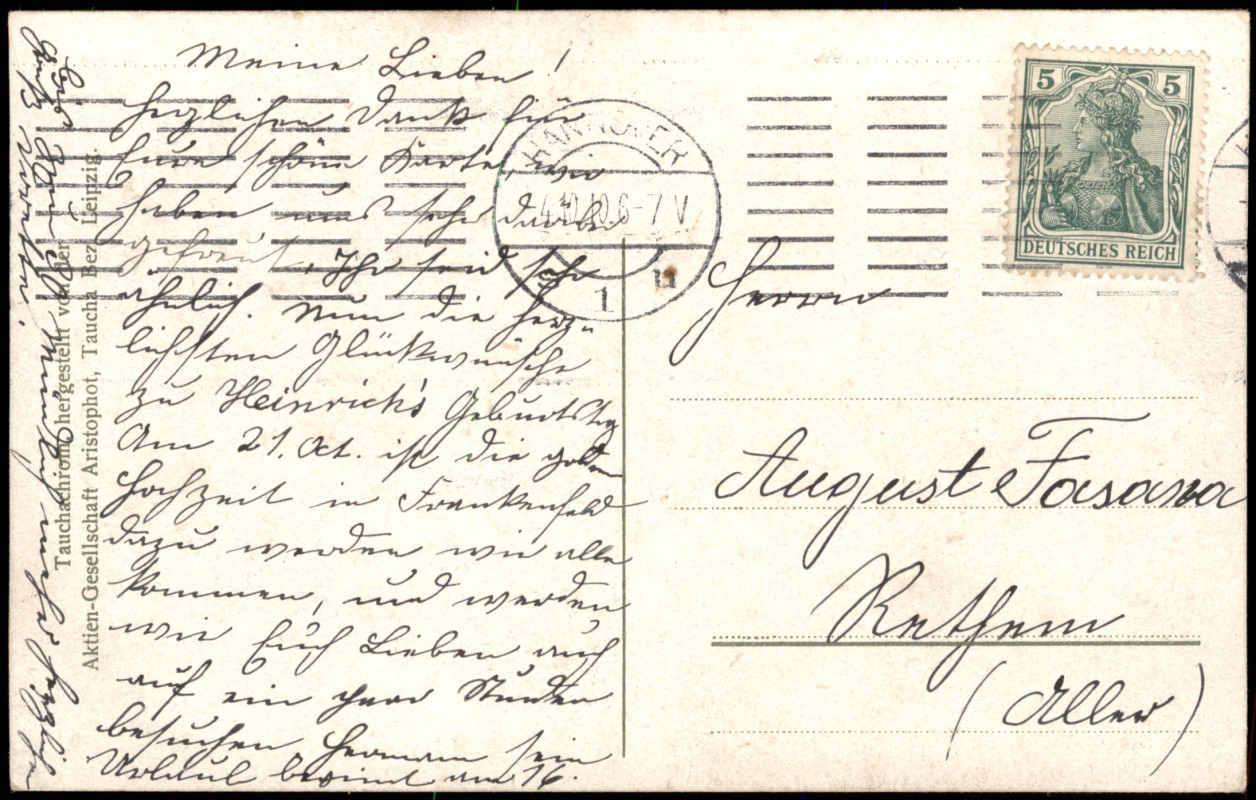 Meine Lieben!
Herzlichen Dank für
Eure schöne Karte, wir
haben uns sehr darüber
gefreut. Ihr seid sehr
ähnlich. Nun die herz-
lichsten Glückwünsche
zu Heinrich's Geburtstag
Am 21. Oct. ist die golden
Hochzeit in Frankenfeld
dazu werden wir alle
kommen, und werden
wir Euch Lieben auch
auf ein paar Stunden
besuchen Hermann sein
Urlaub beginnt am 16.
herzlich
Tauchachrom, hergestellt von der
Aktien-Gesellschaft Aristophot, Taucha Bez. Leipzig.
HANNOVER
4.10.10.6-7 V
1 u
5 5
DEUTSCHES REICH
Herrn
August Fasana
Rethem
(Aller)